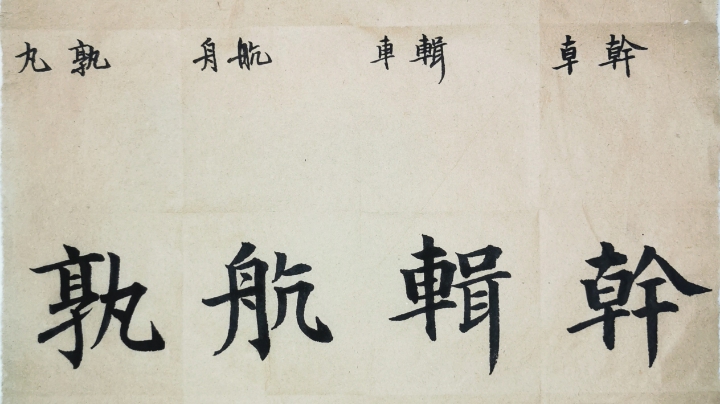 丸 孰 舟 航 車 輯 卓 幹
孰 航 輯 幹